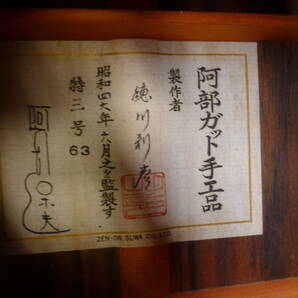 阿部ガット手工品
製作者
徳川利彦
昭和四六年六月之を監製す
特三号 63
ZEN-ON SUWA CO., LTD.